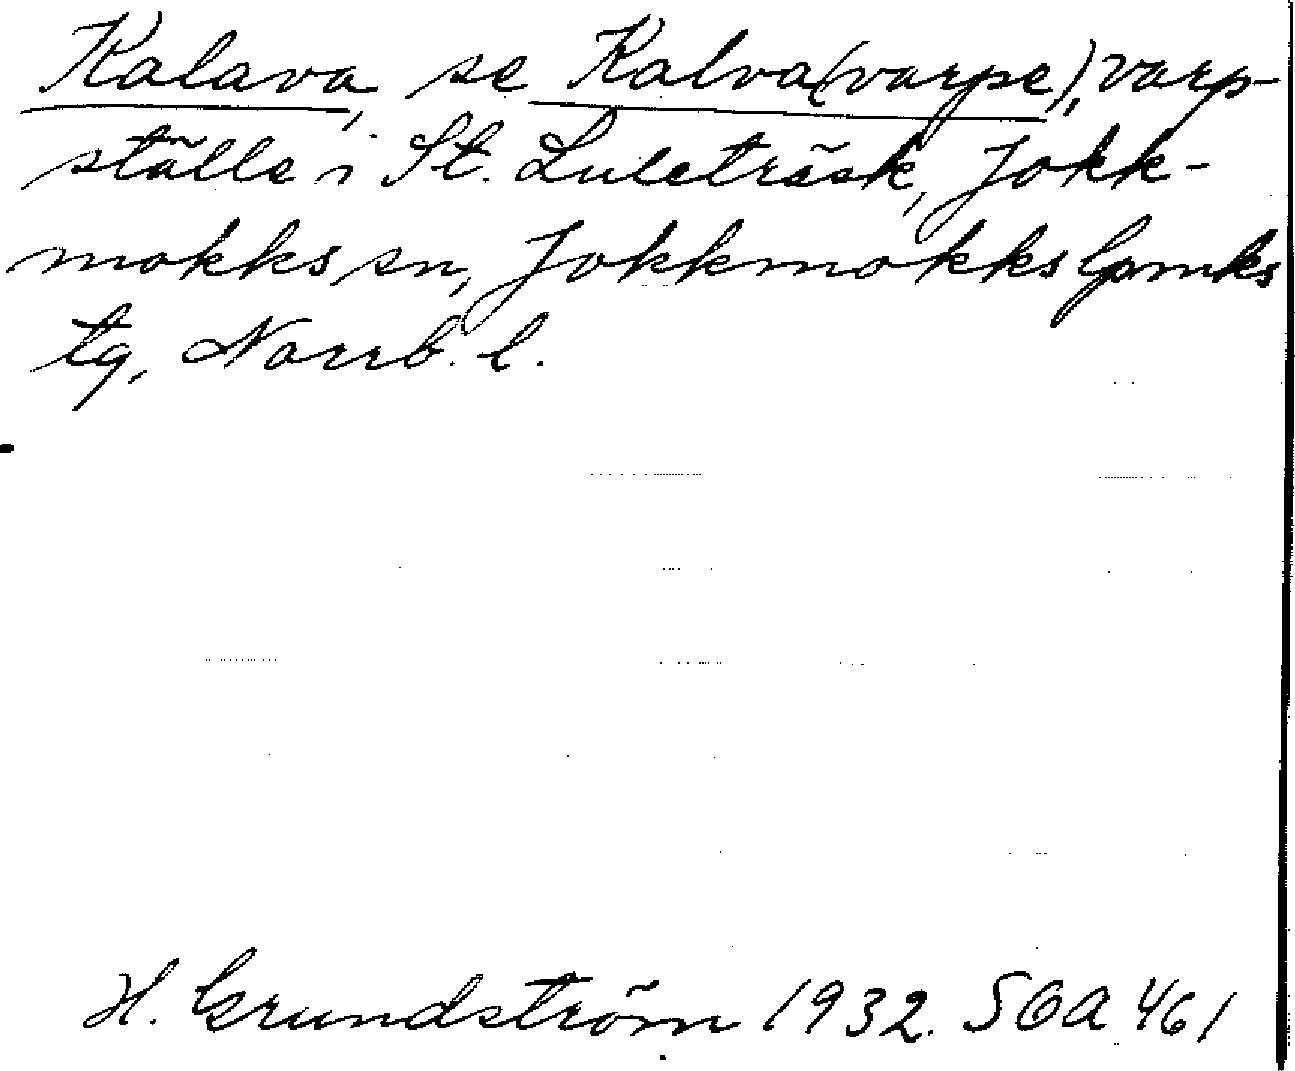 Kalava, se Kalva(varpe), varp-
ställe i St. Luleträsk, Jokk-
mokks sn, Jokkmokks lpmks
tg, Norrb. l.
H. Grundström 1932. SOA 461